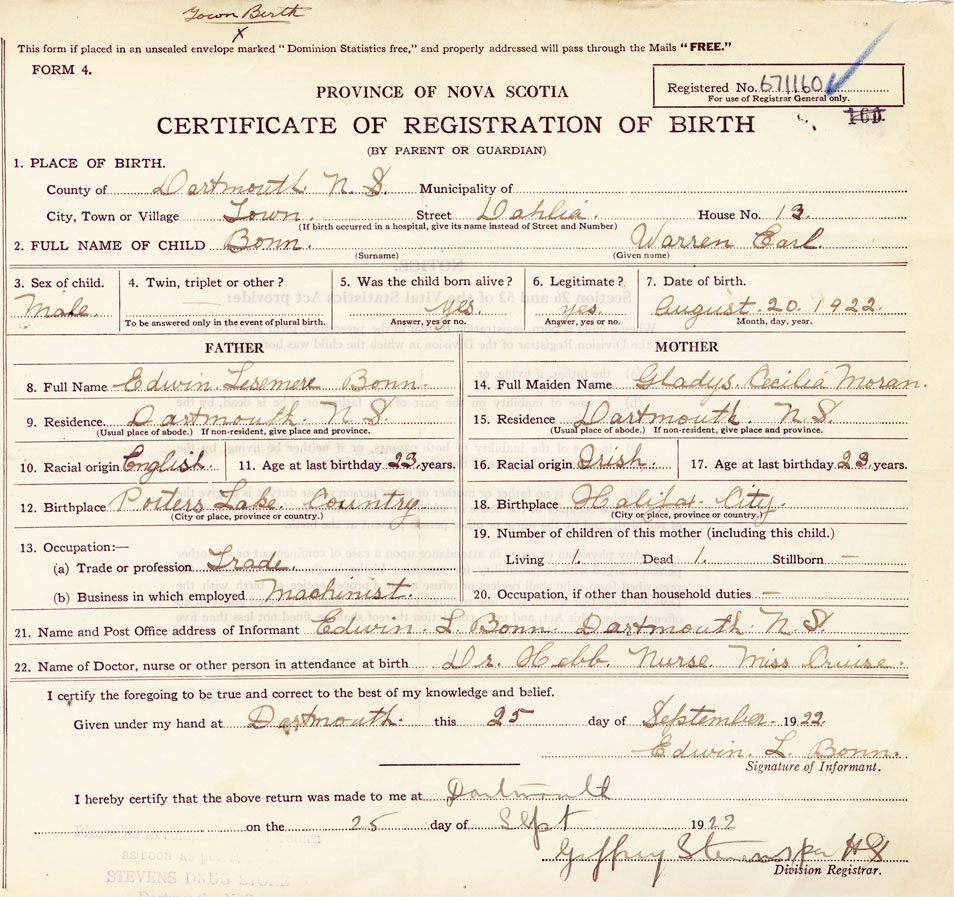 Town Birth
X
This form if placed in an unsealed envelope marked "Dominion Statistics free," and properly addressed will pass through the Mails "FREE."
FORM 4.
Registered No. 671160
For use of Registrar General only.
160
PROVINCE OF NOVA SCOTIA
CERTIFICATE OF REGISTRATION OF BIRTH
(BY PARENT OR GUARDIAN)
1. PLACE OF BIRTH.
County of Dartmouth N. S. Municipality of
City, Town or Village Town. Street Dahlia. House No. 13.
(If birth occurred in a hospital, give its name instead of Street and Number)
2. FULL NAME OF CHILD Bonn. Warren Earl
(Surname) (Given name)
3. Sex of child. 4. Twin, triplet or other? 5. Was the child born alive? 6. Legitimate? 7. Date of birth.
Male. yes. yes. August. 20. 1922.
To be answered only in the event of plural birth. Answer, yes or no. Answer, yes or no. Month, day, year.
FATHER
8. Full Name Edwin Lesemere Bonn.
9. Residence. Dartmouth. N. S.
(Usual place of abode.) If non-resident, give place and province.
10. Racial origin English. 11. Age at last birthday 23 years.
12. Birthplace Porters Lake. Country
(City or place, province or country.)
13. Occupation:—
(a) Trade or profession Trade.
(b) Business in which employed Machinist.
MOTHER
14. Full Maiden Name Gladys. Cecilia Moran.
15. Residence Dartmouth. N. S.
(Usual place of abode.) If non-resident, give place and province.
16. Racial origin Irish. 17. Age at last birthday 23. years.
18. Birthplace Halifax City.
(City or place, province or country.)
19. Number of children of this mother (including this child.)
Living 1. Dead 1. Stillborn —
20. Occupation, if other than household duties —
21. Name and Post Office address of Informant Edwin. L. Bonn. Dartmouth N. S.
22. Name of Doctor, nurse or other person in attendance at birth Dr. Hebb. Nurse. Miss Cruise.
I certify the foregoing to be true and correct to the best of my knowledge and belief.
Given under my hand at Dartmouth. this 25 day of September. 1922.
Edwin. L. Bonn.
Signature of Informant.
I hereby certify that the above return was made to me at Dartmouth
on the 25 day of Sept 1922
Division Registrar.
STEVENS DRUG STORE